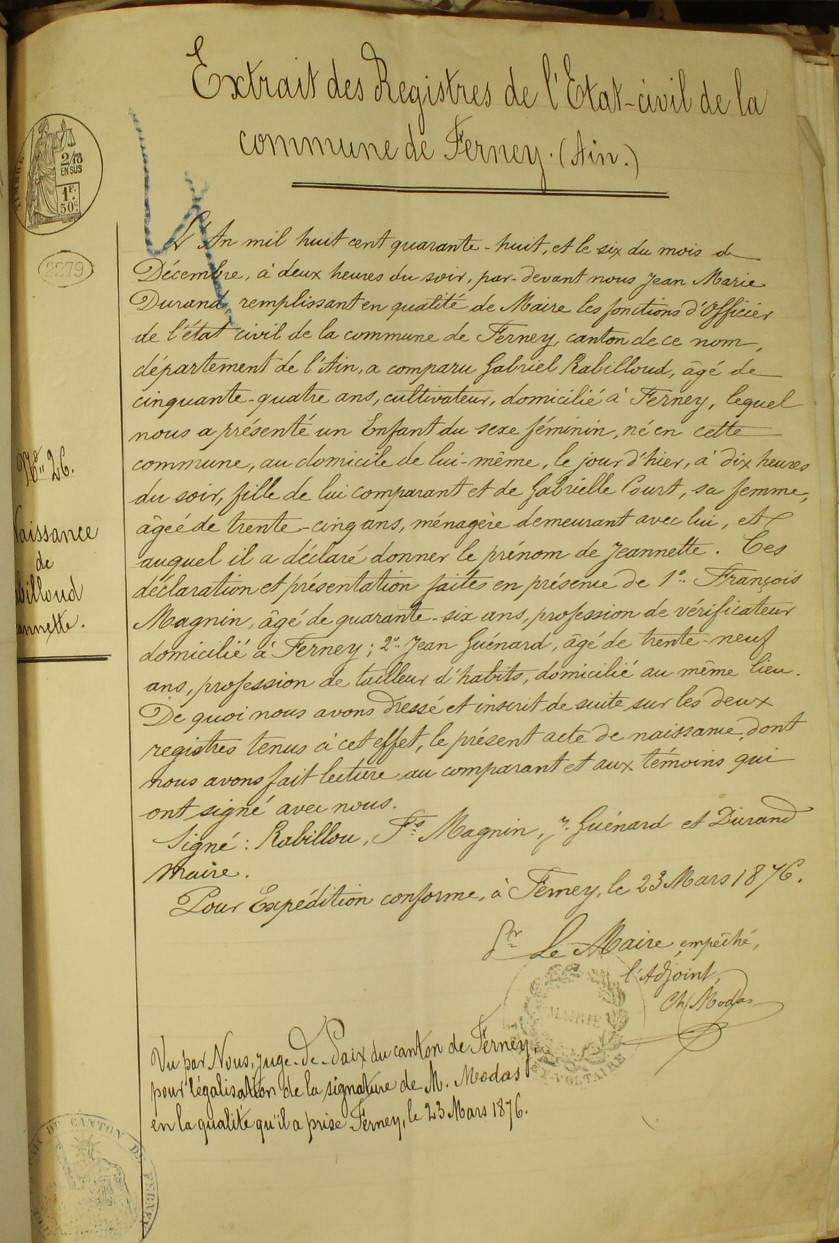 Extrait des Registres de l'Etat-civil de la
commune de Ferney. (Ain.)
2/10
EN SUS
1F.
50c
2279
L'An mil huit cent quarante-huit, et le six du mois de
Décembre, à deux heures du soir, par-devant nous Jean Marie
Durand remplissant en qualité de Maire les fonctions d'Officier
de l'état civil de la commune de Ferney, canton de ce nom,
département de l'Ain, a comparu Gabriel Rabilloud, âgé de
cinquante-quatre ans, cultivateur, domicilié à Ferney, lequel
nous a présenté un Enfant du sexe féminin, né en cette
commune, au domicile de lui-même, le jour d'hier, à dix heures
du soir, fille de lui comparant et de Gabrielle Court, sa femme,
âgéé de trente-cinq ans, ménagère demeurant avec lui, et
auquel il a déclaré donner le prénom de Jeannette. Ces
déclaration et présentation faites en présence de 1º. François
Magnin, âgé de quarante-six ans, profession de vérificateur
domicilié à Ferney; 2º. Jean Guénard, âgé de trente-neuf
ans, profession de tailleur d'habits, domicilié au même lieu.
De quoi nous avons dressé et inscrit de suite sur les deux
registres tenus à cet effet, le présent acte de naissance, dont
nous avons fait lecture au comparant et aux témoins qui
ont signé avec nous.
Signé: Rabillou, Fs Magnin, J. Guénard et Durand
maire.
Pour Expédition conforme, à Ferney, le 23 Mars 1876.
Pr Le Maire empêché,
l'Adjoint,
Ch. Modas
Nº 26.
Naissance
de
billoud
annette.
MAIRIE
EY-VOLTAIRE
Vu par Nous, Juge-de-Paix du canton de Ferney,
pour légalisation de la signature de M. Modas
en la qualité qu'il a prise Ferney, le 23 Mars 1876.
CANTON DE FERNEY